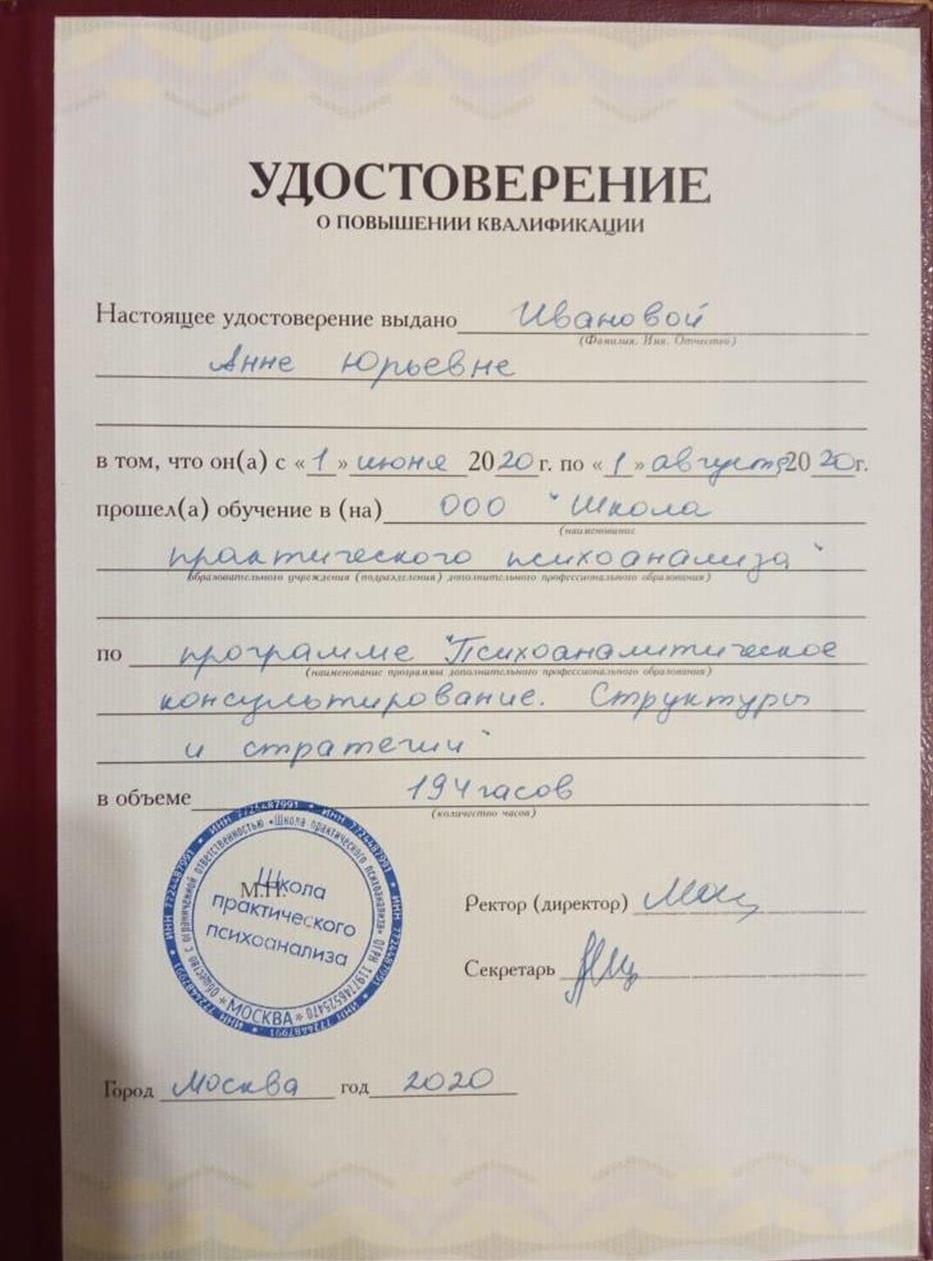 УДОСТОВЕРЕНИЕ
О ПОВЫШЕНИИ КВАЛИФИКАЦИИ
Настоящее удостоверение выдано Ивановой
(Фамилия. Имя. Отчество)
Анне Юрьевне
в том, что он(а) с «1» июня 2020 г. по «1» августа 2020 г.
прошел(а) обучение в (на) ООО "Школа
(наименование
практического психоанализа"
образовательного учреждения (подразделения) дополнительного профессионального образования)
по программе "Психоаналитическое
(наименование программы дополнительного профессионального образования)
консультирование. Структуры
и стратегии"
в объеме 194 часов
(количество часов)
ИНН 7724487991 • ИНН 7724487991 • ИНН 7724487991 • ИНН 7724487991 • ИНН 7724487991 • ИНН 7724487991
Общество с ограниченной ответственностью «Школа практического психоанализа» ОГРН 1197746525470
* МОСКВА *
М.П.
Школа
практического
психоанализа
Ректор (директор)
Секретарь
Город Москва год 2020